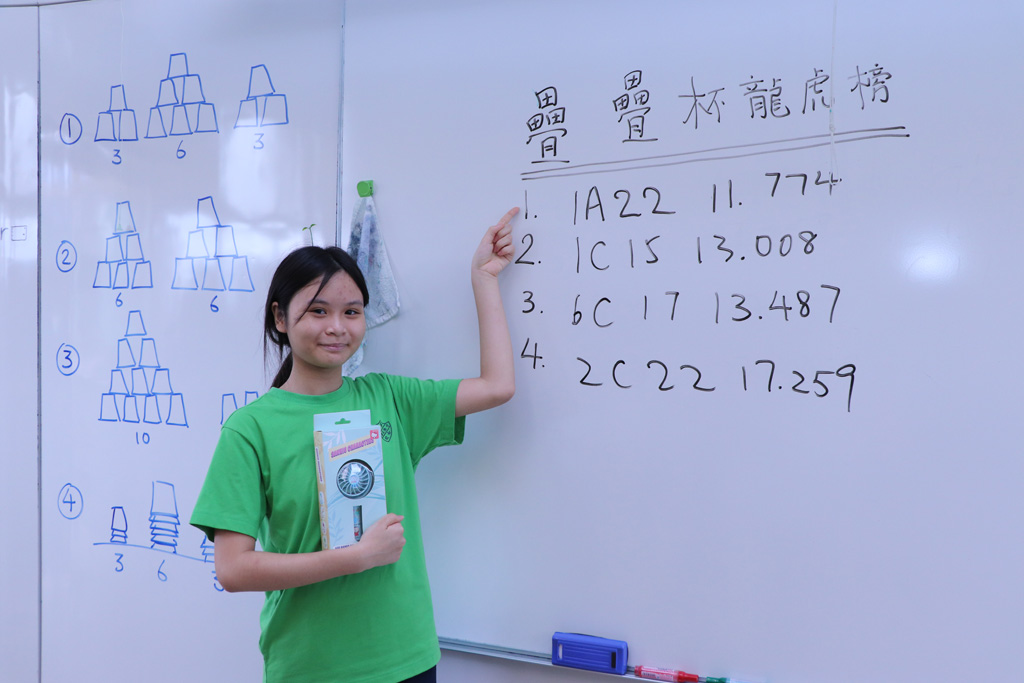 ① 3 6 3
② 6 6
③ 10
④ 3 6 3
疊 疊 杯 龍 虎 榜
1. 1A22 11.774
2. 1C15 13.008
3. 6C 17 13.487
4. 2C22 17.259